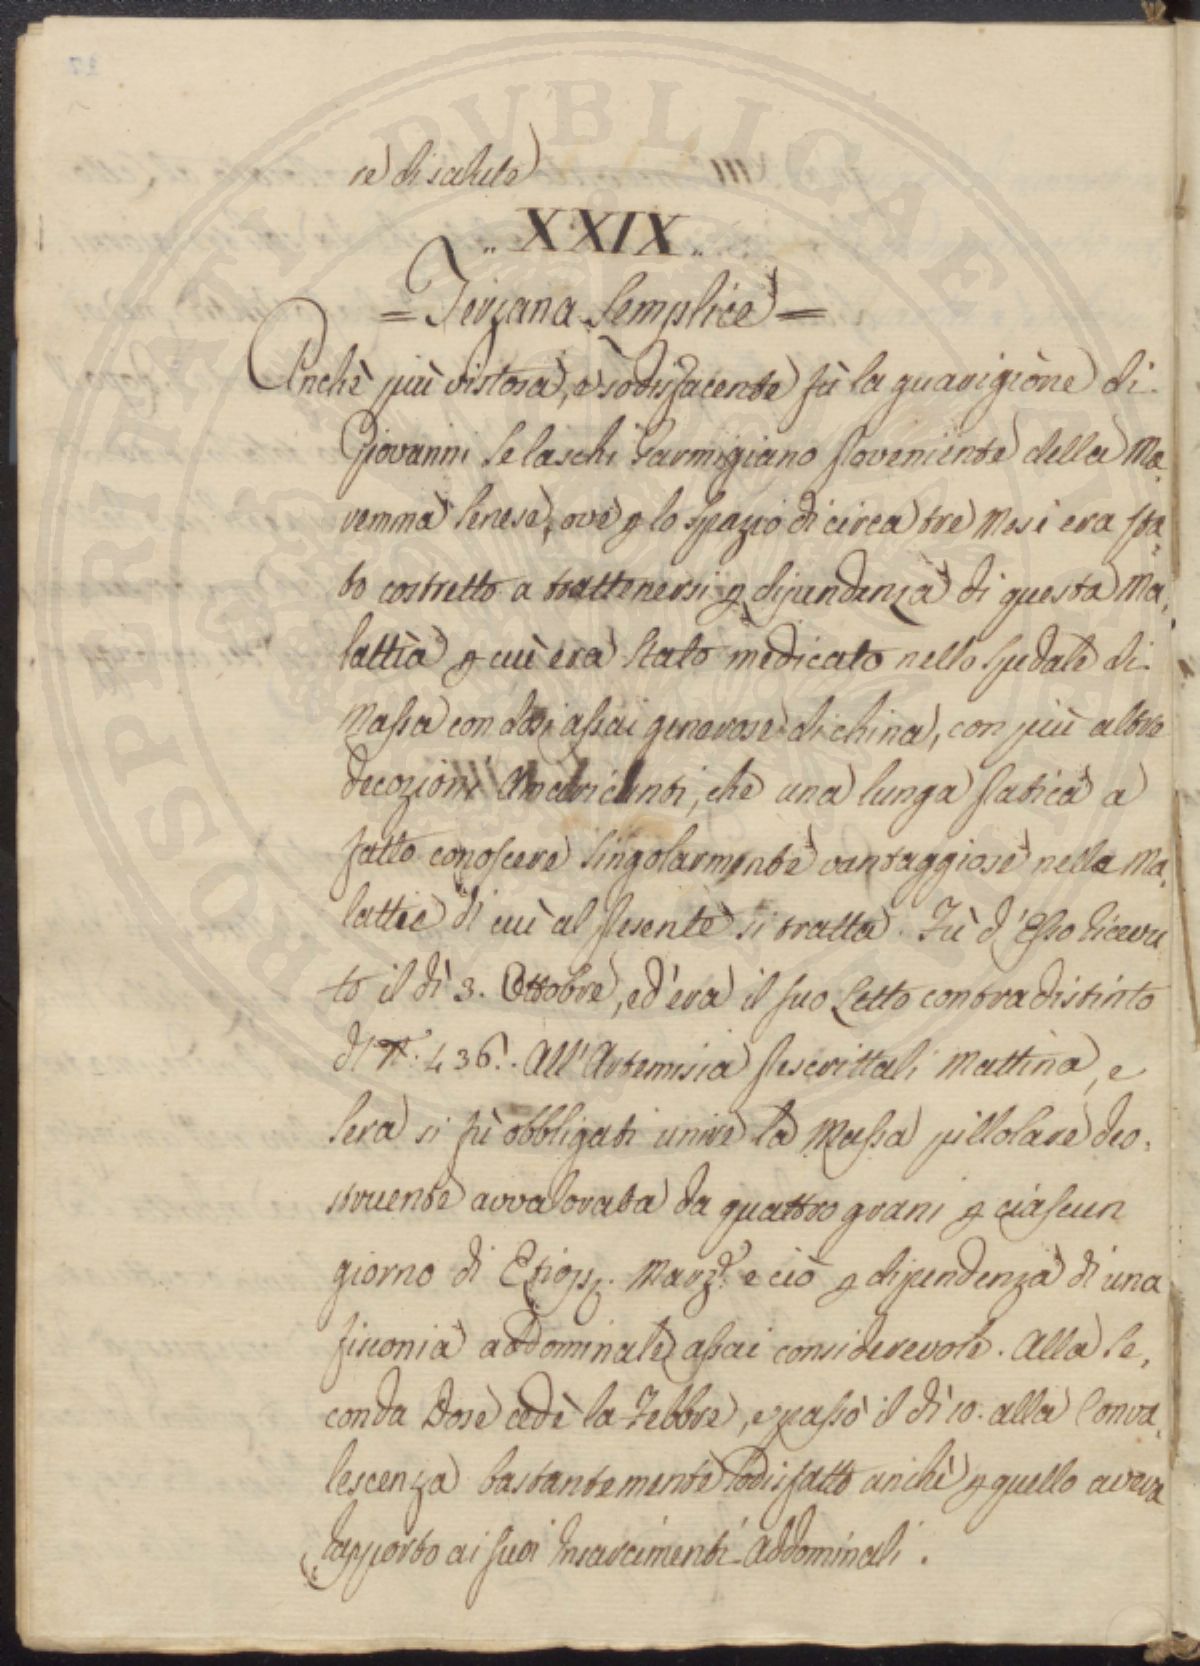 re di salute
.. XXIX ..
= Terzana Semplice =
Anche più vistosa, e sodisfacente fù la guarigione di
Giovanni Selaschi Parmigiano proveniente della Ma,
remma Senese, ove p lo spazio di circa tre Mesi era sta,
to costretto a trattenersi p dipendenza di questa Ma,
lattia p cui era stato medicato nello Spedale di
Massa con dosi assai generose di china, con più altre
decozioni Amaricanti, che una lunga pratica a
fatto conoscere singolarmente vantaggiose nelle Ma,
lattie di cui al presente si tratta. Fù d'Esso ricevu
to il dì 3. Ottobre, ed'era il suo Letto contradistinto
di N.° 436. All'Artemisia prescrittali Mattina, e
sera si fù obbligati unire la Massa pillolare deo,
struente avvalorata da quattro grani p ciascun
giorno di Etiop. Marz. e ciò p dipendenza di una
fisconia addominale assai considerevole. Alla Se,
conda Dose cedè la Febbre, e passò il dì 10. alla Conva,
lescenza bastantemente sodisfatto anche p quello aveva
rapporto ai suoi Insarcimenti Addominali.
PUBLICAE